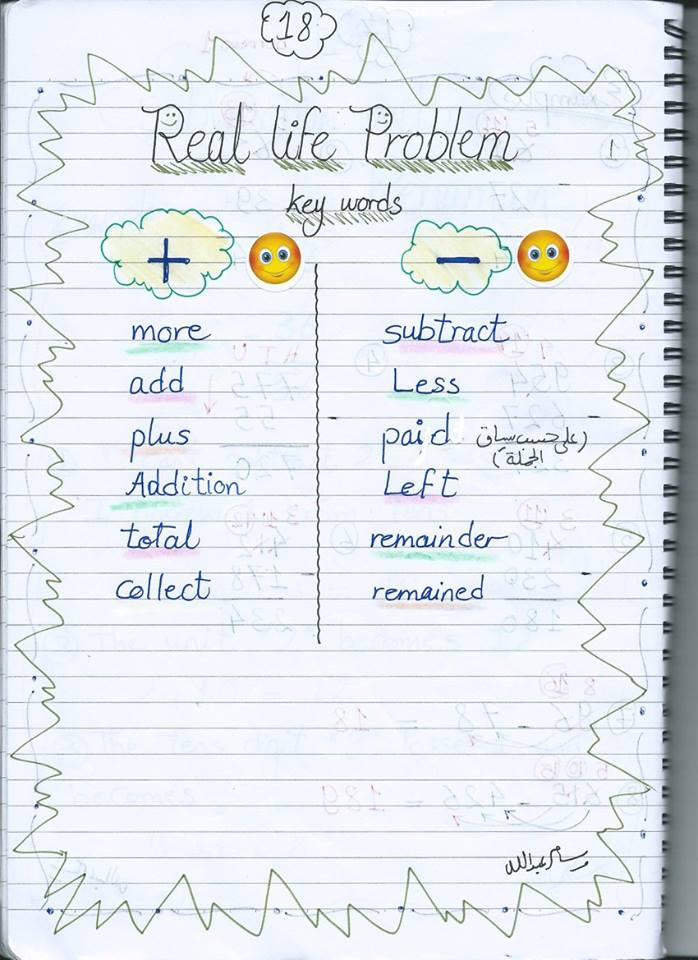 18
Real life Problem
key words
+
more
add
plus
Addition
total
collect
−
subtract
Less
paid (على حسب سياق
الجملة)
Left
remainder
remained
وسام عبدالله